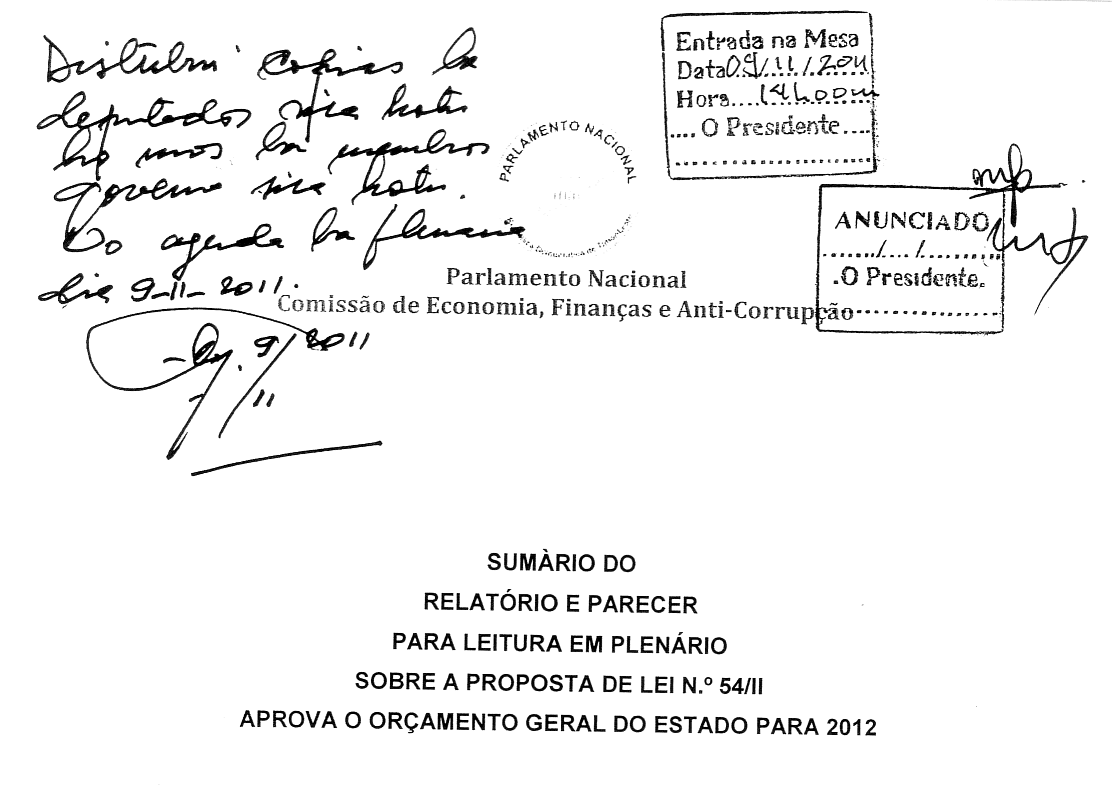 Distribui copias ba
deputados sira hotu
ho mos ba membros
governu sira hotu.
agenda ba plenaria
dia 9-11-2011.
9/2011
11
Entrada na Mesa
Data 09/11/2011
Hora.... 14h00m
.... O Presidente....
PARLAMENTO NACIONAL
ANUNCIADO
...../..../..........
.O Presidente.
Parlamento Nacional
Comissão de Economia, Finanças e Anti-Corrupção
SUMÀRIO DO
RELATÓRIO E PARECER
PARA LEITURA EM PLENÁRIO
SOBRE A PROPOSTA DE LEI N.º 54/II
APROVA O ORÇAMENTO GERAL DO ESTADO PARA 2012